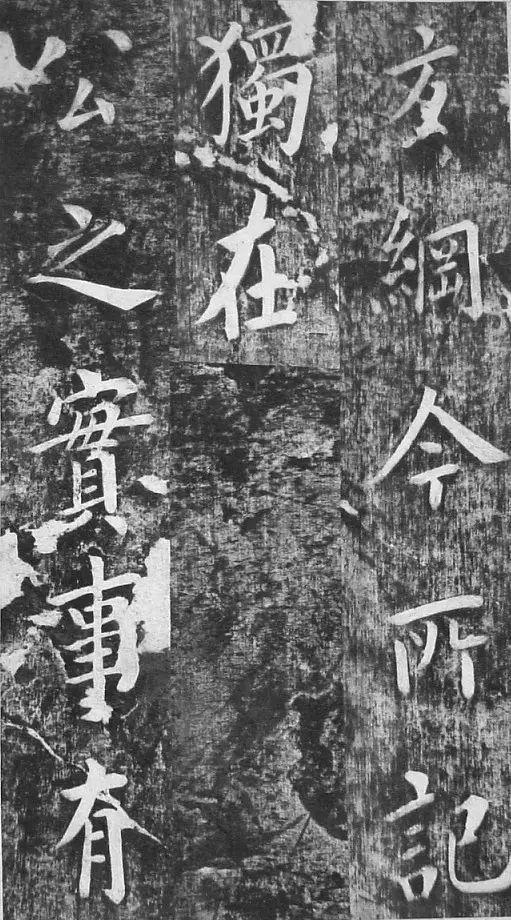 綱今所記
獨在
公之實事有